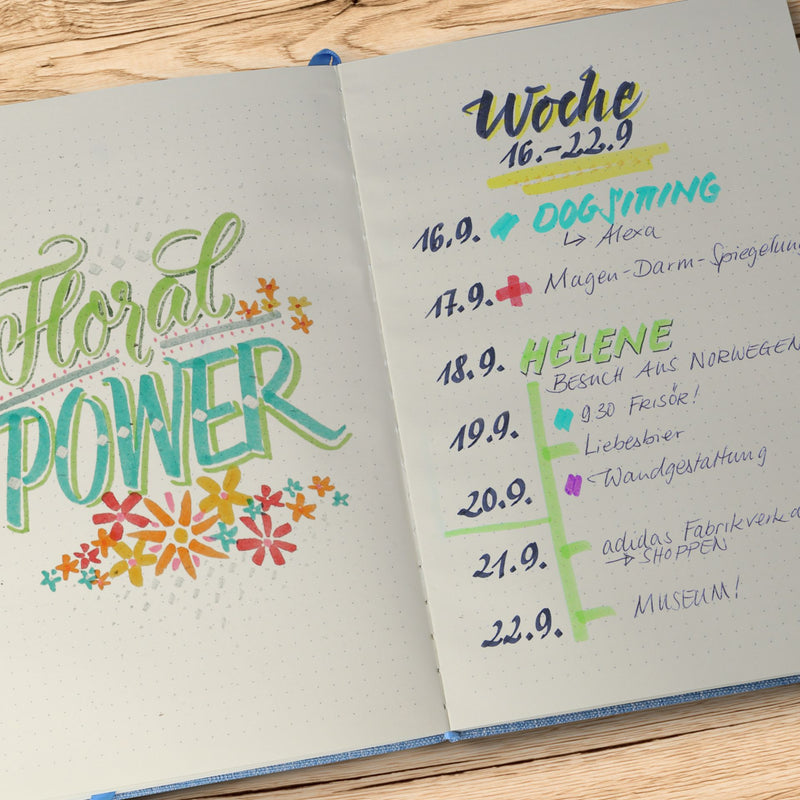 Floral
POWER
Woche
16.-22.9
16.9. DOGSITTING
↳ Alexa
17.9. Magen-Darm-Spiegelung
18.9. HELENE
BESUCH AUS NORWEGEN
19.9. 930 FRISÖR!
Liebesbier
20.9. Wandgestaltung
21.9. adidas Fabrikverka
→ SHOPPEN
22.9. MUSEUM!